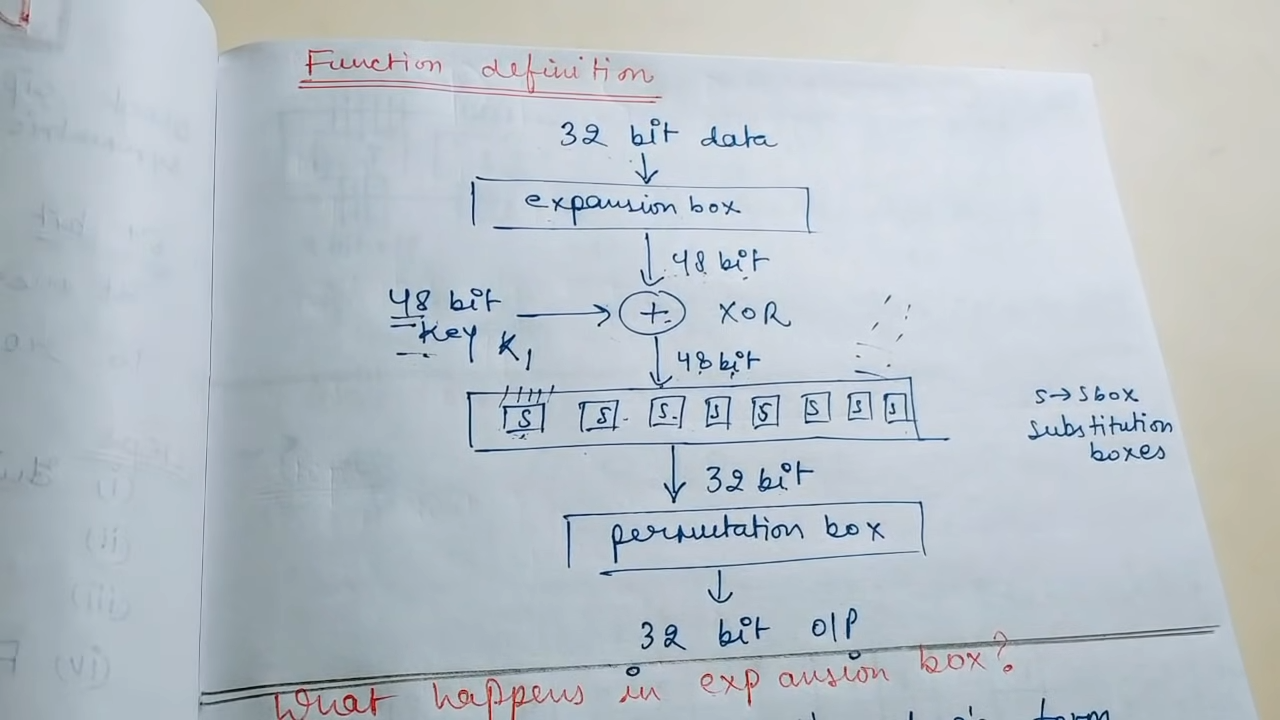 Function definition
32 bit data
expansion box
48 bit
48 bit
Key K1
+ XOR
48 bit
S S S S S S S S
S→Sbox
substitution
boxes
32 bit
permutation box
32 bit O/P
What happens in expansion box?
(i)
(ii)
(iii)
(iv)